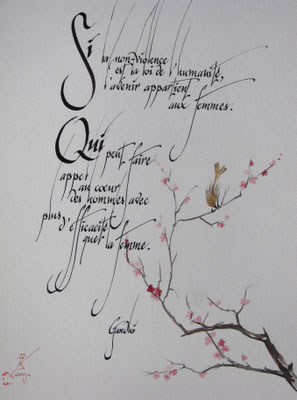 Si la non-violence
est la loi de l'humanité,
l'avenir appartient
aux femmes.
Qui peut faire
appel
au cœur
des hommes avec
plus d'efficacité
que la femme.
Gandhi